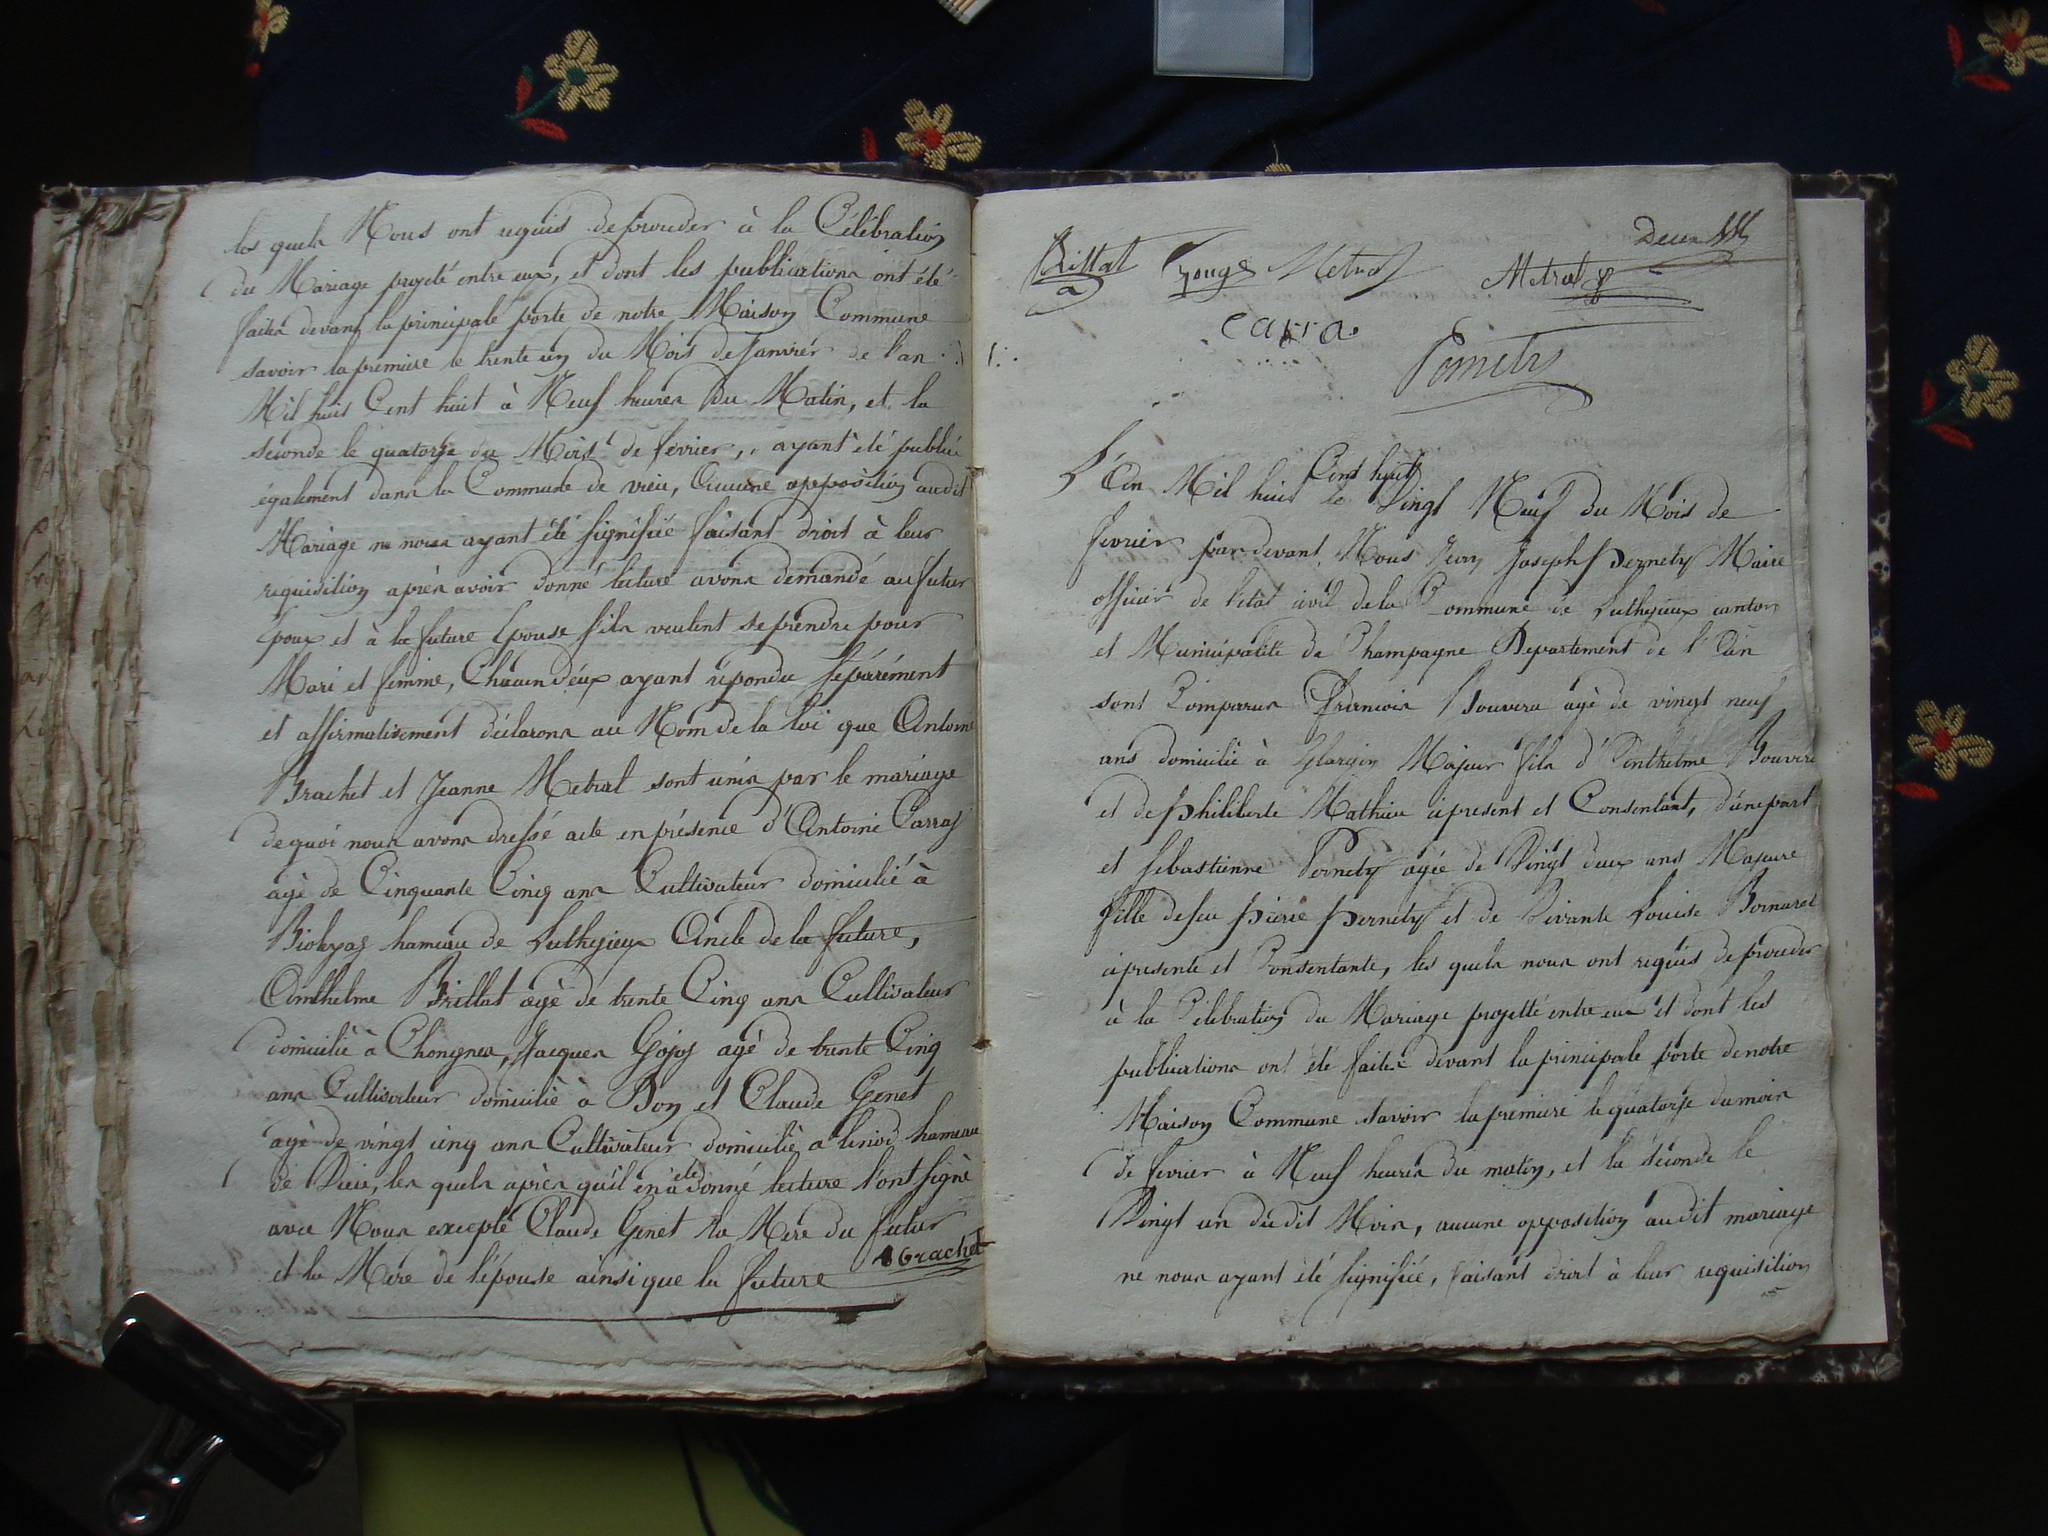 les quels Nous ont requis de proceder à la Célébration
du Mariage projeté entre eux, et dont les publications ont été
faites devant la principale porte de notre Maison Commune
savoir la premiere le trente un du Mois de Janvier de l'an
Mil huit Cent huit à Neuf heures du Matin, et la
seconde le quatorze du Mois de fevrier, ayant été publié
également dans la Commune de vieu, Aucune opposition audit
Mariage ne nous ayant été signifiée faisant droit à leur
requisition après avoir donné lecture avons demandé au futur
Epoux et à la future Epouse s'ils veulent se prendre pour
Mari et femme, Chacun d'eux ayant répondu séparément
et affirmativement déclarons au Nom de la loi que Antoine
Brachet et Jeanne Metral sont unis par le mariage
de quoi nous avons dressé acte en présence d'Antoine Carraz
agé de Cinquante Cinq ans Cultivateur domicilié à
hameau de Luthezieux Oncle de la future,
Anthelme Brillat agé de trente Cinq ans Cultivateur
domicilié à Chongnes, Jacques Gojoz agé de trente Cinq
ans Cultivateur domicilié à Don et Claude Genet
agé de vingt cinq ans Cultivateur domicilié a hameau
de Vieu, les quels après qu'il en a été donné lecture l'ont signé
avec Nous excepté Claude Genet la Mere du futur
et la Mere de l'épouse ainsi que la future Brachet
Brillat Metral Metral
Carra
Pernety
L'An Mil huit Cent huit le Vingt Neuf du Mois de
fevrier par devant Nous Jean Joseph Pernety Maire
officier de l'etat civil de la Commune de Luthezieux canton
et Municipalité de Champagne Departement de l'Ain
sont Comparus Francois Bouvera agé de vingt neuf
ans domicilié à Majeur fils d'Anthelme Bouvera
et de Philiberte Mathieu cipresent et Consentant, d'une part
et Sebastienne Pernety agée de Vingt deux ans Majeure
fille de feu Pierre Pernety et de Vivante Louise Bornarel
cipresente et Consentante, les quels nous ont requis de proceder
à la Célébration du Mariage projetté entre eux et dont les
publications ont été faites devant la principale porte de notre
Maison Commune savoir la premiere le quatorze du mois
de fevrier à Neuf heures du matin, et la seconde le
Vingt un du dit Mois, aucune opposition au dit mariage
ne nous ayant été signifiée, faisant droit à leur requisition